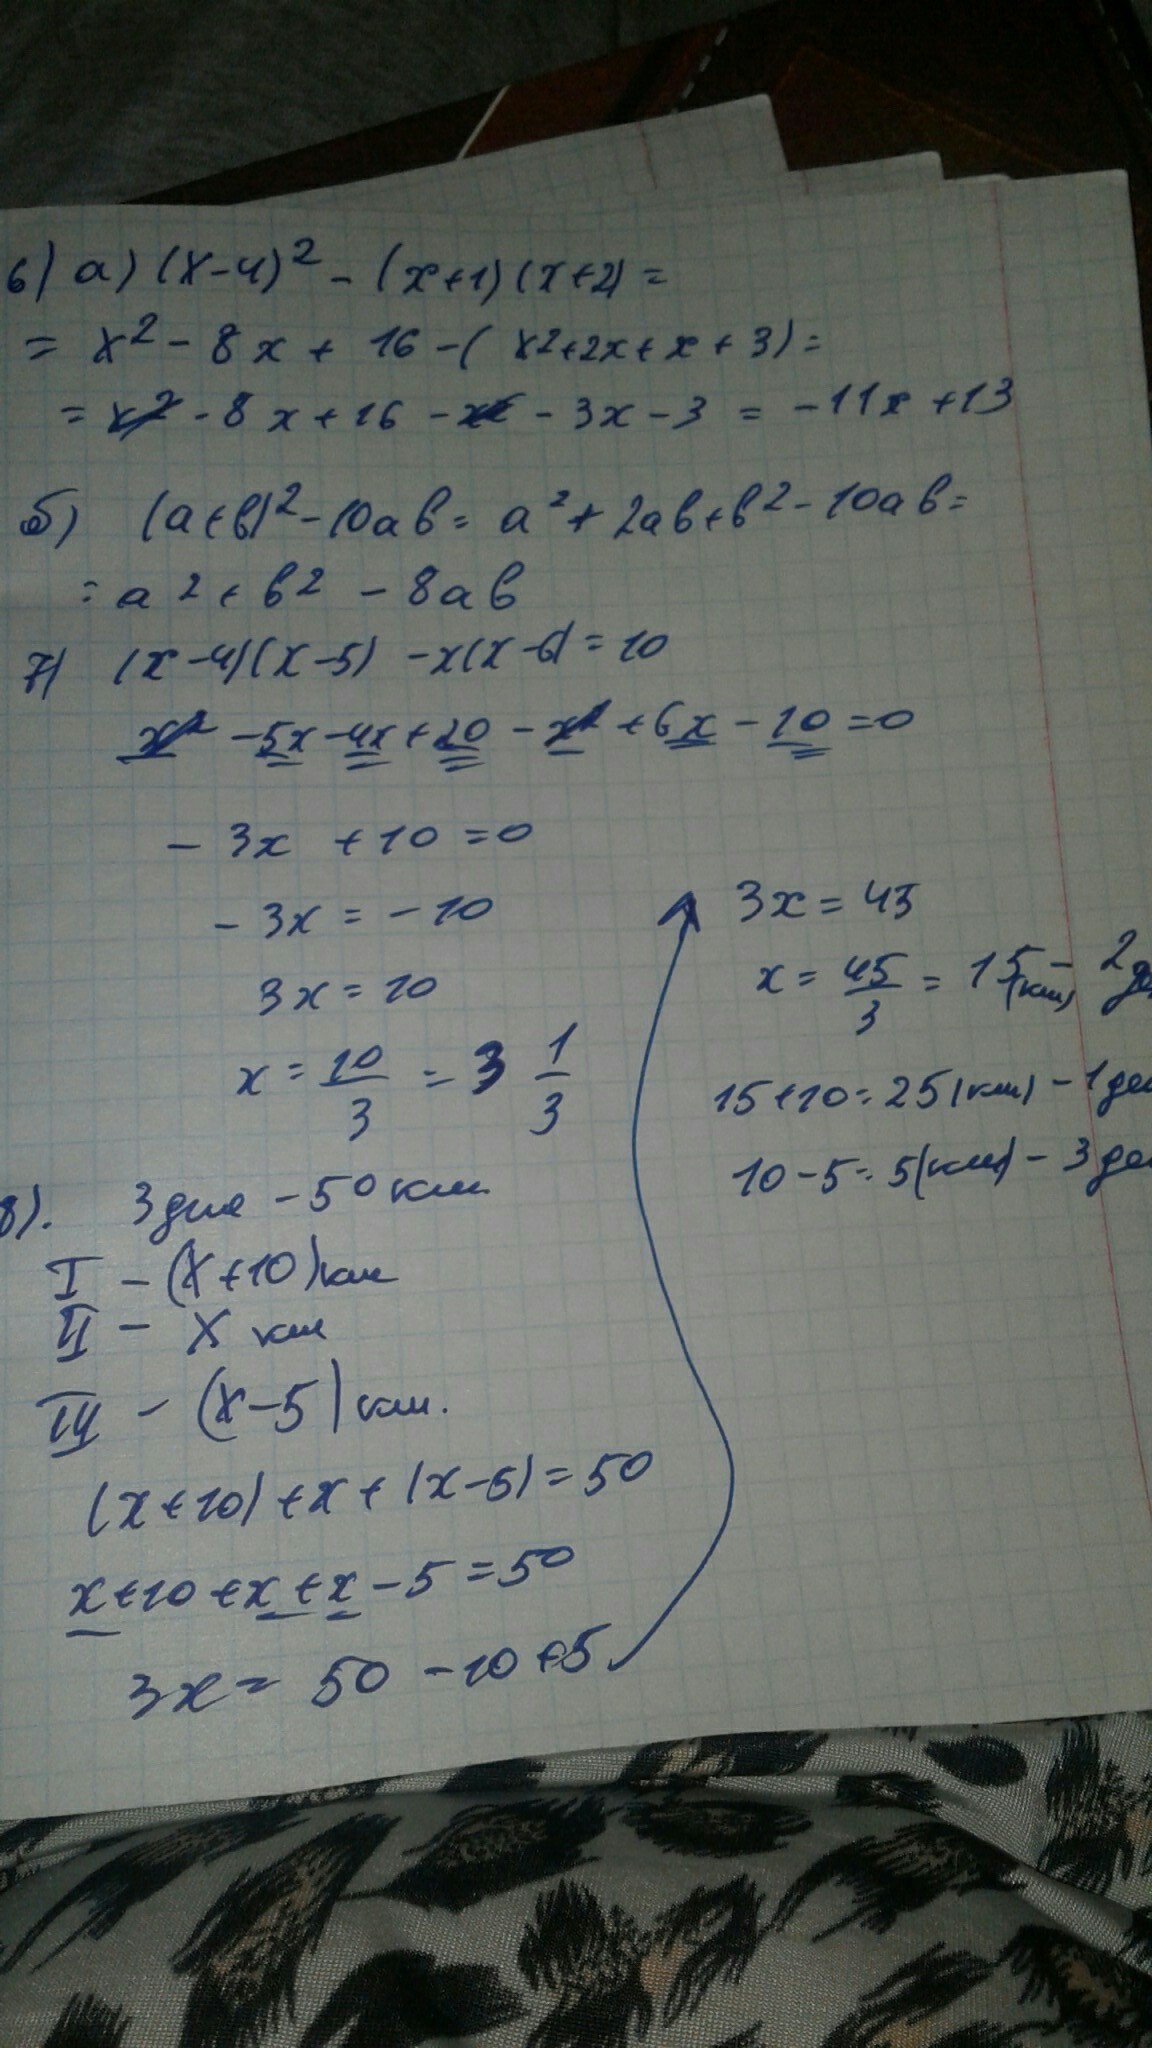 6) а) (x-4)² - (x+1)(x+2) =
= x² - 8x + 16 - (x²+2x+x+3) =
= x² - 8x + 16 - x² - 3x - 3 = -11x + 13
б) (a+b)² - 10ab = a² + 2ab + b² - 10ab =
= a² + b² - 8ab
7) (x-4)(x-5) - x(x-6) = 10
x² - 5x - 4x + 20 - x² + 6x - 10 = 0
- 3x + 10 = 0
- 3x = - 10
3x = 10
x = 10/3 = 3 1/3
8). 3 дня - 50 км
I - (x+10) км
II - x км
III - (x-5) км.
(x+10) + x + (x-5) = 50
x+10+x+x-5 = 50
3x = 50 - 10 + 5
3x = 45
x = 45/3 = 15 (км) - 2
15+10 = 25 (км) - 1
10-5 = 5 (км) - 3